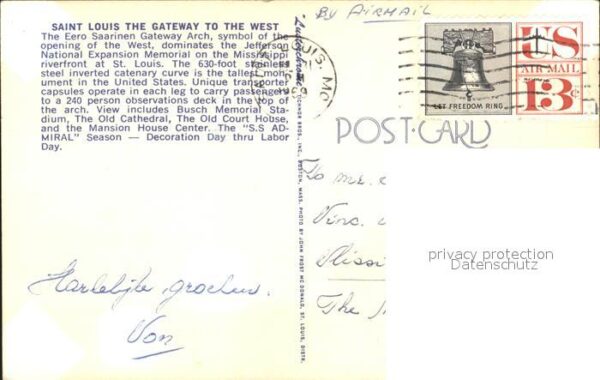 SAINT LOUIS THE GATEWAY TO THE WEST
The Eero Saarinen Gateway Arch, symbol of the
opening of the West, dominates the Jefferson
National Expansion Memorial on the Mississippi
riverfront at St. Louis. The 630-foot stainless
steel inverted catenary curve is the tallest monu-
ument in the United States. Unique transporter
capsules operate in each leg to carry passengers
to a 240 person observations deck in the top of
the arch. View includes Busch Memorial Sta-
dium, The Old Cathedral, The Old Court House,
and the Mansion House Center. The "S.S AD-
MIRAL" Season — Decoration Day thru Labor
Day.
Hartelijke groeten.
Von
BOSTON, MASS. PHOTO BY JOHN FROST MC DONALD, ST. LOUIS, DISTR.
BY AIRMAIL
LOUIS, MO.
LET FREEDOM RING
US
AIR MAIL
13c
POST CARD
To mr.
Vinc
The
privacy protection
Datenschutz